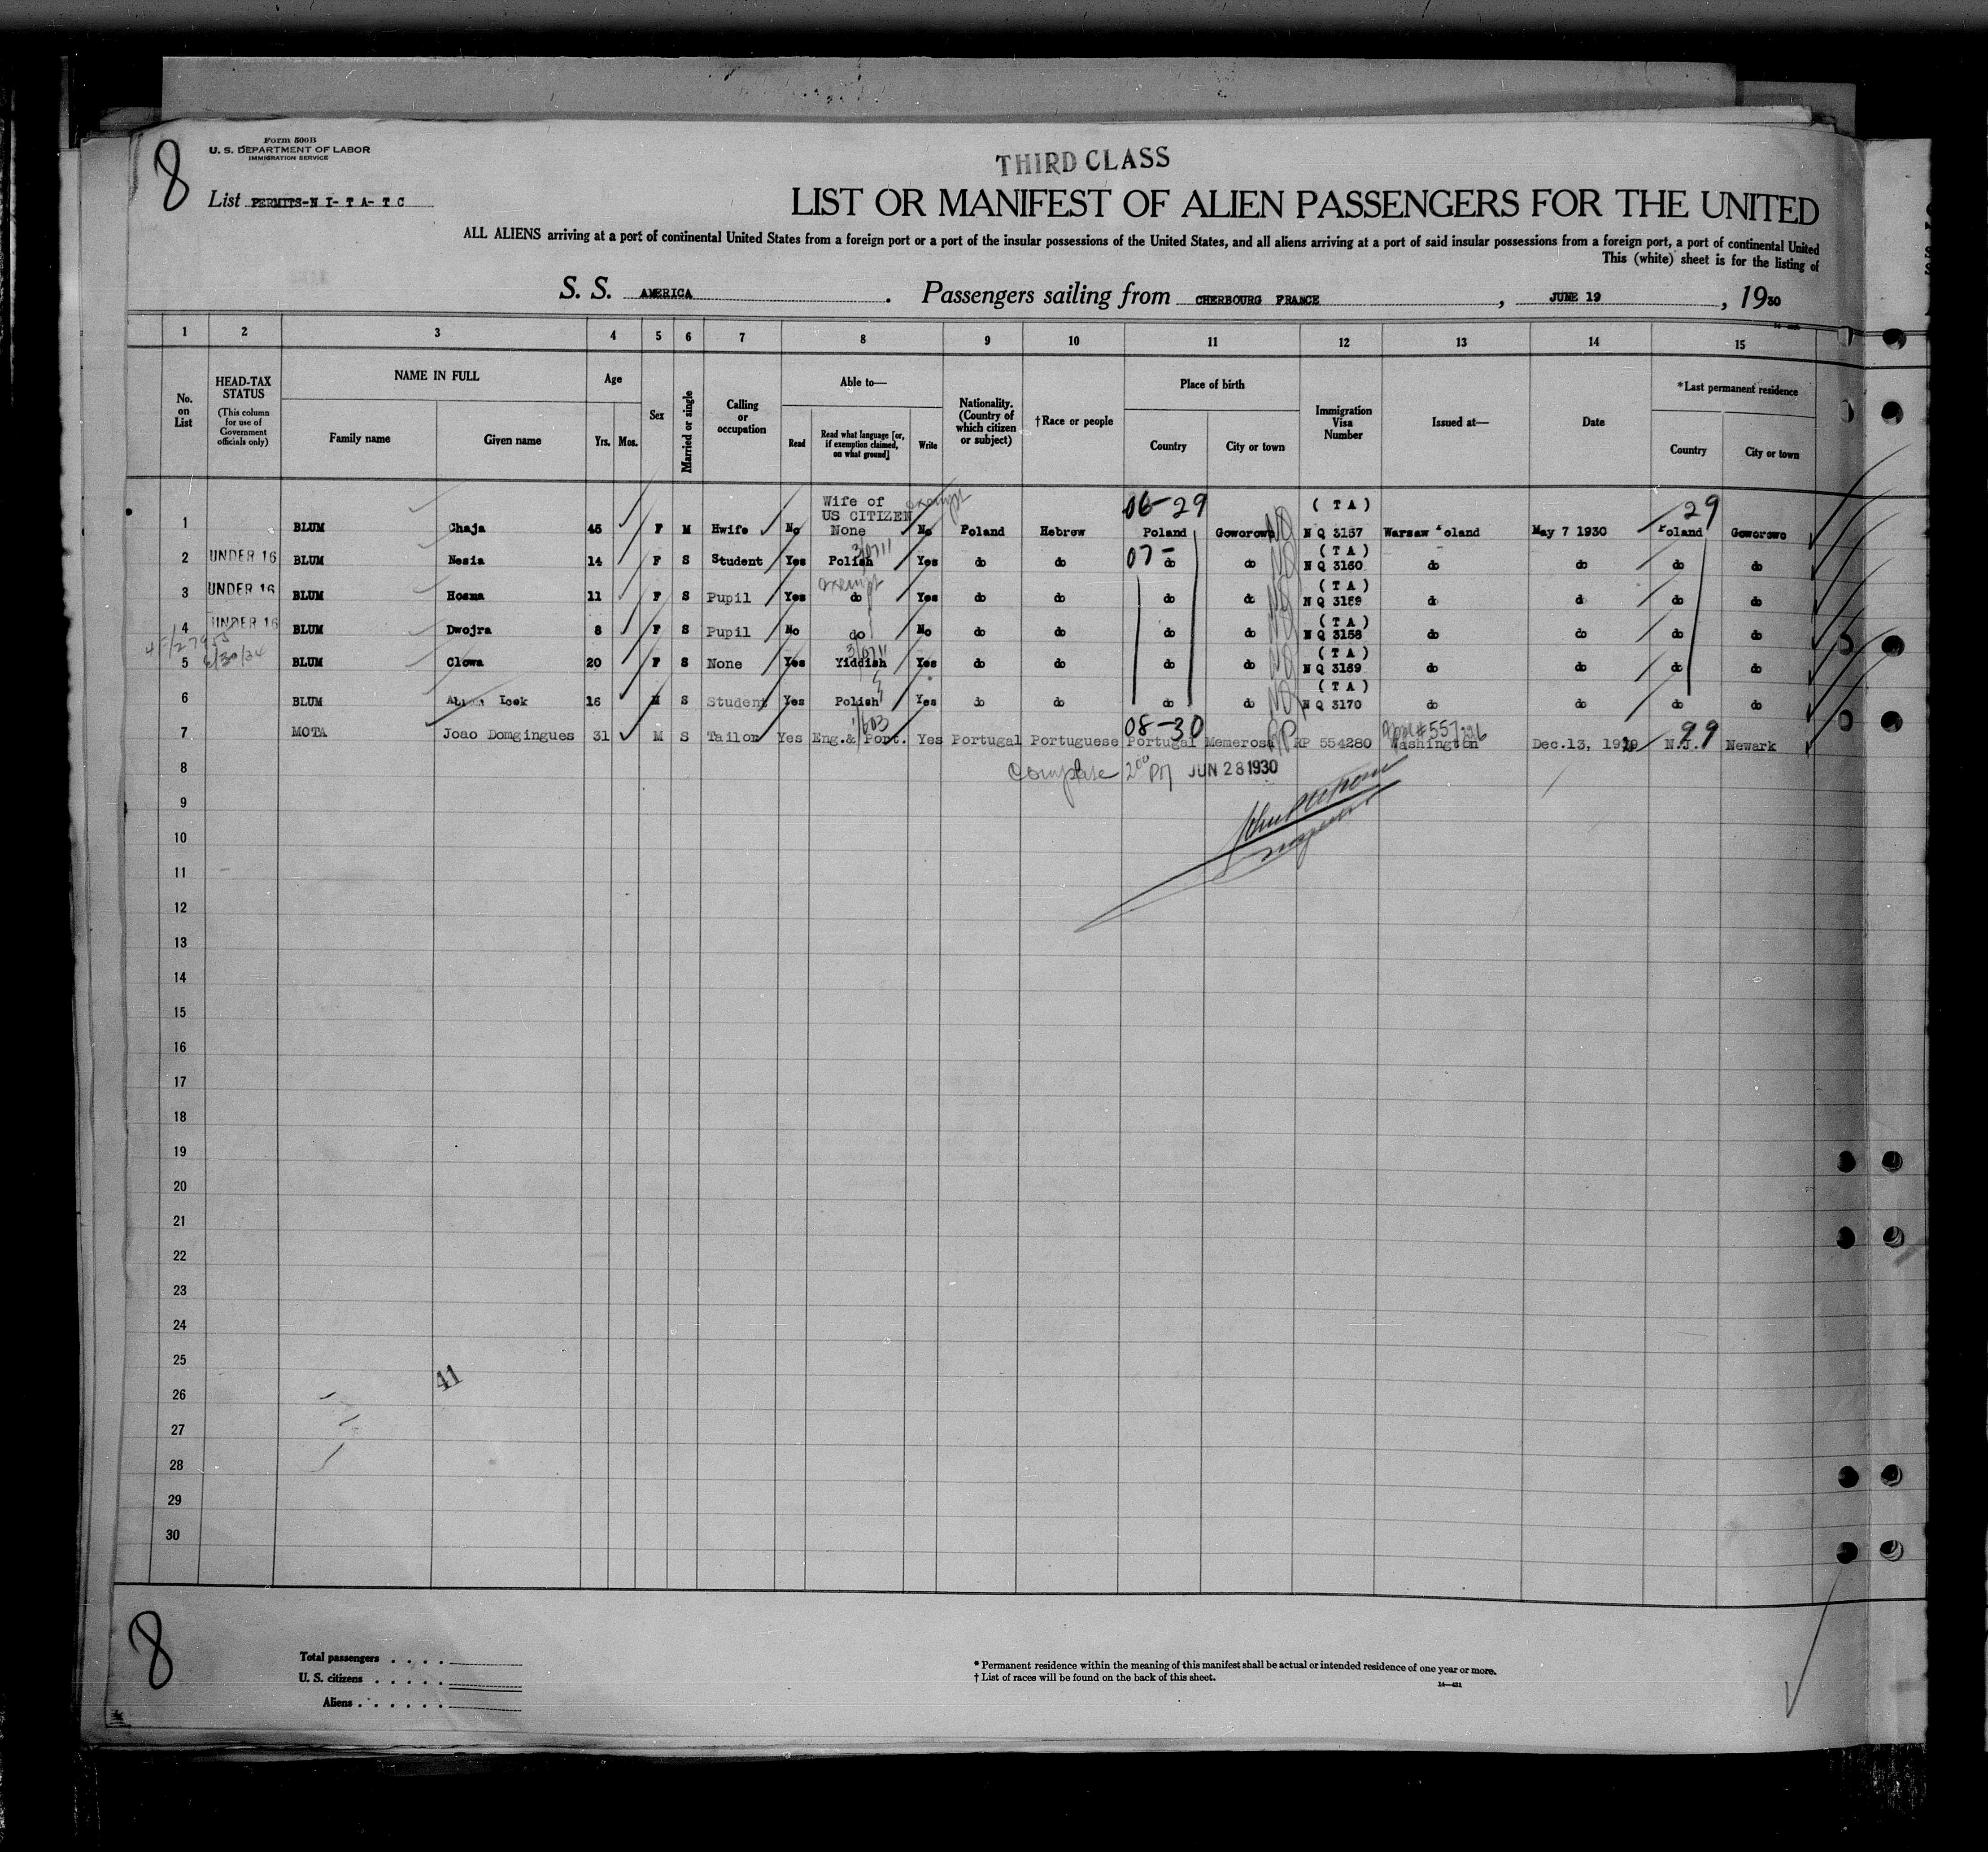 8
Form 500B
U. S. DEPARTMENT OF LABOR
IMMIGRATION SERVICE
THIRD CLASS
List PERMITS-N I- T A- T C
LIST OR MANIFEST OF ALIEN PASSENGERS FOR THE UNITED
ALL ALIENS arriving at a port of continental United States from a foreign port or a port of the insular possessions of the United States, and all aliens arriving at a port of said insular possessions from a foreign port, a port of continental United
This (white) sheet is for the listing of
S. S. AMERICA. Passengers sailing from CHERBOURG FRANCE, JUNE 19, 1930
1 2 3 4 5 6 7 8 9 10 11 12 13 14 15
No. on List
HEAD-TAX STATUS (This column for use of Government officials only)
NAME IN FULL
Family name Given name
Age
Yrs. Mos.
Sex
Married or single
Calling or occupation
Able to—
Read
Read what language [or, if exemption claimed, on what ground]
Write
Nationality. (Country of which citizen or subject)
†Race or people
Place of birth
Country City or town
Immigration Visa Number
Issued at—
Date
*Last permanent residence
Country City or town
Wife of exempt 06-29 ( T A ) 29
US CITIZEN
1 BLUM Chaja 45 F M Hwife No None No Poland Hebrew Poland Goworowo N Q 3157 Warsaw oland May 7 1930 Poland Goworowo
( T A )
2 UNDER 16 BLUM Nesia 14 F S Student Yes Polish Yes do do 07- do do N Q 3160 do do do do
exempt ( T A )
3 UNDER 16 BLUM Hosna 11 F S Pupil Yes do Yes do do do do N Q 3159 do d do do
( T A )
4 UNDER 16 BLUM Dwojra 8 F S Pupil No do No do do do do N Q 3158 do do do do
( T A )
5 6/30/34 BLUM Clowa 20 F S None Yes Yiddish Yes do do do do N Q 3169 do do do do
( T A )
6 BLUM Icek 16 M S Student Yes Polish Yes do do do do N Q 3170 do do do do
08-30 99
7 MOTA Joao Domgingues 31 M S Tailor Yes Eng.& Port. Yes Portugal Portuguese Portugal Memerosa RP 554280 Washington Dec.13, 1929 N.J. Newark
8 Complete 2 00 PM JUN 28 1930
9
10
11
12
13
14
15
16
17
18
19
20
21
22
23
24
25
41
26
27
28
29
30
8
Total passengers
U. S. citizens
Aliens
* Permanent residence within the meaning of this manifest shall be actual or intended residence of one year or more.
† List of races will be found on the back of this sheet.